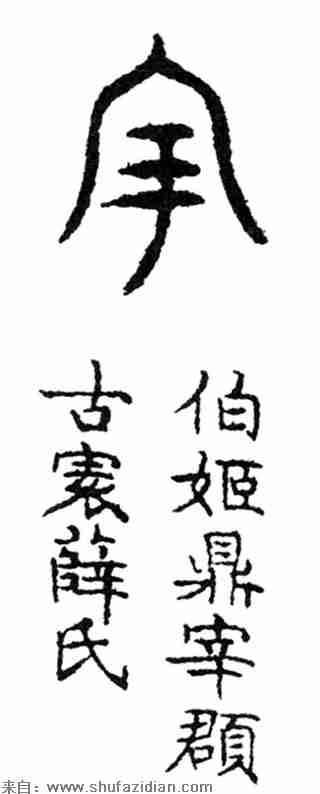 宰
伯姬鼎宰頵
古寰薛氏
来自：www.shufazidian.com